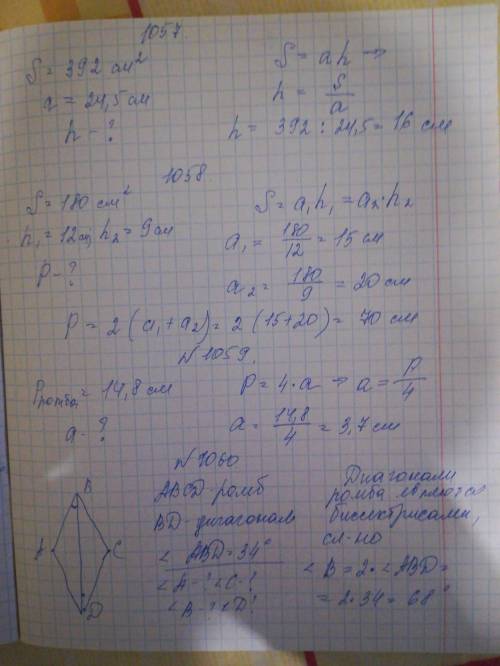 1057
S = 392 см²
a = 24,5 см
h - ?
S = ah →
h = S/a
h = 392 : 24,5 = 16 см
1058
S = 180 см²
h₁ = 12 см, h₂ = 9 см
P - ?
S = a₁h₁ = a₂·h₂
a₁ = 180/12 = 15 см
a₂ = 180/9 = 20 см
P = 2(a₁ + a₂) = 2(15+20) = 70 см
№1059.
Pромба = 14,8 см
a - ?
P = 4·a → a = P/4
a = 14,8/4 = 3,7 см
№1060
B
A
C
D
ABCD - ромб
BD - диагональ
∠ABD = 34°
∠A - ? ∠C - ?
∠B - ? ∠D ?
Диагонали
ромба являются
биссектрисами,
сл-но
∠B = 2·∠ABD =
= 2·34 = 68°